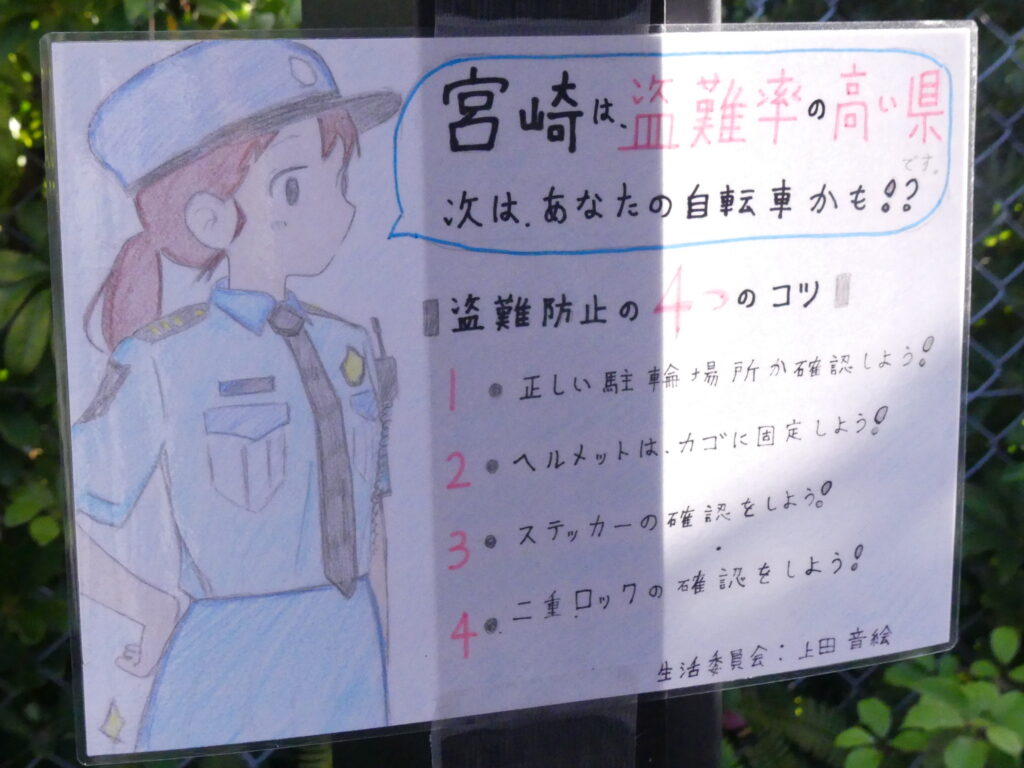 宮崎は、盗難率の高い県です。
次は、あなたの自転車かも!?
盗難防止の4つのコツ
1 • 正しい駐輪場所か確認しよう!
2 • ヘルメットは、カゴに固定しよう!
3 • ステッカーの確認をしよう!
4 • 二重ロックの確認をしよう!
生活委員会:上田 音絵